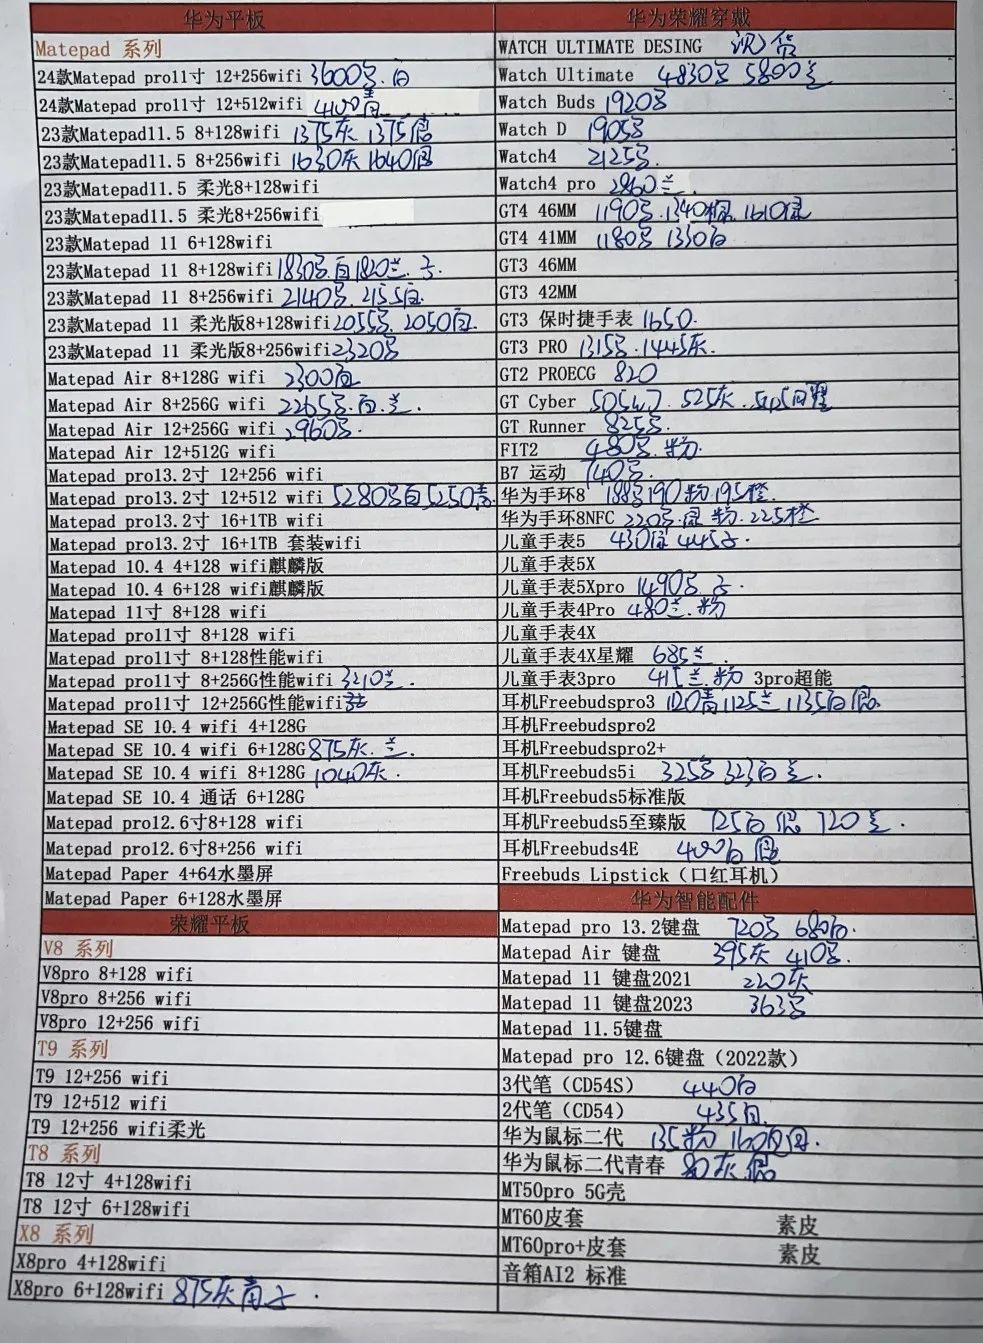 华为平板
Matepad 系列
24款Matepad pro11寸 12+256wifi 3600 白
24款Matepad pro11寸 12+512wifi 4100青
23款Matepad11.5 8+128wifi 1375灰 1375
23款Matepad11.5 8+256wifi 1630灰 1640
23款Matepad11.5 柔光8+128wifi
23款Matepad11.5 柔光8+256wifi
23款Matepad 11 6+128wifi
23款Matepad 11 8+128wifi 1830 白 1820兰.
23款Matepad 11 8+256wifi 2140 2155白.
23款Matepad 11 柔光版8+128wifi 2055 2050白.
23款Matepad 11 柔光版8+256wifi 2320
Matepad Air 8+128G wifi 2300白
Matepad Air 8+256G wifi 2265 .白.兰.
Matepad Air 12+256G wifi 2960
Matepad Air 12+512G wifi
Matepad pro13.2寸 12+256 wifi
Matepad pro13.2寸 12+512 wifi 5280 白 5250青.
Matepad pro13.2寸 16+1TB wifi
Matepad pro13.2寸 16+1TB 套装wifi
Matepad 10.4 4+128 wifi麒麟版
Matepad 10.4 6+128 wifi麒麟版
Matepad 11寸 8+128 wifi
Matepad pro11寸 8+128 wifi
Matepad pro11寸 8+128性能wifi
Matepad pro11寸 8+256G性能wifi 3210兰.
Matepad pro11寸 12+256G性能wifi
Matepad SE 10.4 wifi 4+128G
Matepad SE 10.4 wifi 6+128G 875灰.兰.
Matepad SE 10.4 wifi 8+128G 1040灰.
Matepad SE 10.4 通话 6+128G
Matepad pro12.6寸8+128 wifi
Matepad pro12.6寸8+256 wifi
Matepad Paper 4+64水墨屏
Matepad Paper 6+128水墨屏
荣耀平板
V8 系列
V8pro 8+128 wifi
V8pro 8+256 wifi
V8pro 12+256 wifi
T9 系列
T9 12+256 wifi
T9 12+512 wifi
T9 12+256 wifi柔光
T8 系列
T8 12寸 4+128wifi
T8 12寸 6+128wifi
X8 系列
X8pro 4+128wifi
X8pro 6+128wifi 875灰青
华为荣耀穿戴
WATCH ULTIMATE DESING 货
Watch Ultimate 4830 5800兰
Watch Buds 1920
Watch D 1905
Watch4 2125
Watch4 pro 2860兰.
GT4 46MM 1190 .1340棕.1610绿
GT4 41MM 1180 1330白
GT3 46MM
GT3 42MM
GT3 保时捷手表 1650.
GT3 PRO 1315 .1445灰.
GT2 PROECG 820
GT Cyber 505 525灰.
GT Runner 825
FIT2 480 .粉.
B7 运动 740
华为手环8 188 190粉.195橙.
华为手环8NFC 220 .绿 粉.225橙
儿童手表5 430 445
儿童手表5X
儿童手表5Xpro 1490
儿童手表4Pro 480兰.粉
儿童手表4X
儿童手表4X星耀 685兰.
儿童手表3pro 415兰.粉 3pro超能
耳机Freebudspro3 1120青1125兰 1135白
耳机Freebudspro2
耳机Freebudspro2+
耳机Freebuds5i 325 323白兰.
耳机Freebuds5标准版
耳机Freebuds5至臻版 725白 720兰.
耳机Freebuds4E 400白
Freebuds Lipstick（口红耳机）
华为智能配件
Matepad pro 13.2键盘 720 680白.
Matepad Air 键盘 395灰 410
Matepad 11 键盘2021 220灰
Matepad 11 键盘2023 363
Matepad 11.5键盘
Matepad pro 12.6键盘（2022款）
3代笔（CD54S） 440白
2代笔（CD54） 435白.
华为鼠标二代 135粉 160
华为鼠标二代青春 80灰.
MT50pro 5G壳
MT60皮套 素皮
MT60pro+皮套 素皮
音箱AI2 标准